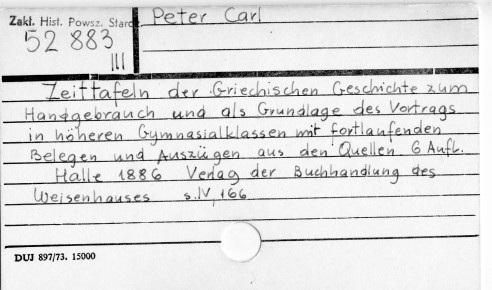 Zakł. Hist. Powsz. Staroż. Peter Carl
52 883
III
Zeittafeln der Griechischen Geschichte zum
Handgebrauch und als Grundlage des Vortrags
in höheren Gymnasialklassen mit fortlaufenden
Belegen und Auszügen aus den Quellen 6 Aufl.
Halle 1886 Verlag der Buchhandlung des
Weisenhauses s. IV, 166
DUJ 897/73. 15000